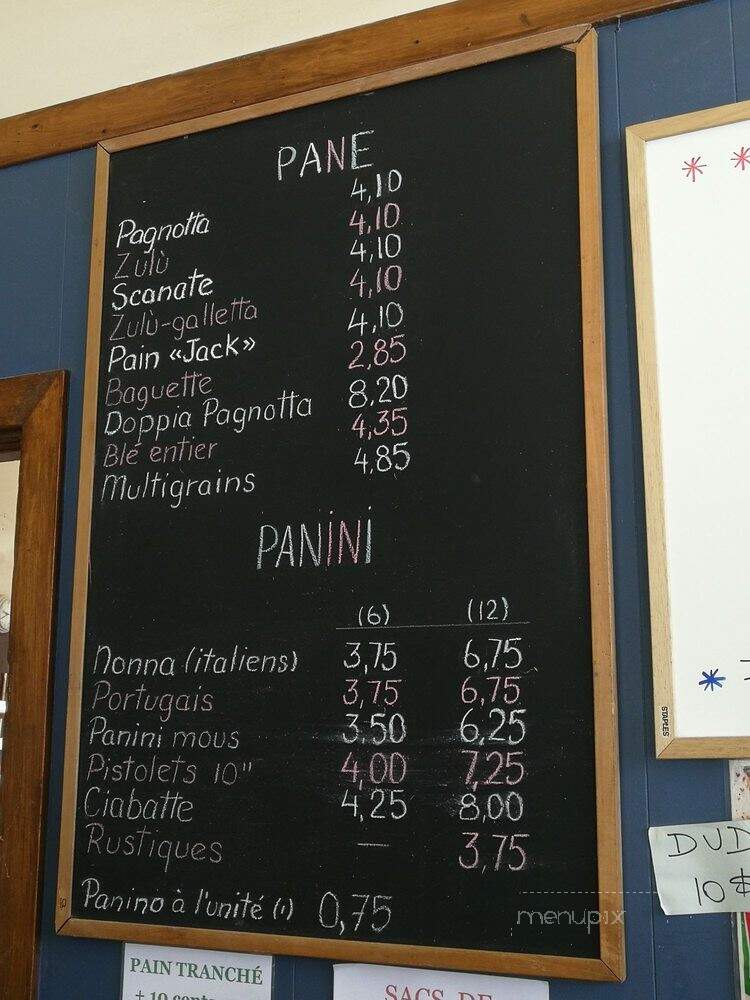 PANE
Pagnotta 4,10
Zulù 4,10
Scanate 4,10
Zulù-galletta 4,10
Pain «Jack» 4,10
Baguette 2,85
Doppia Pagnotta 8,20
Blé entier 4,35
Multigrains 4,85
PANiNi
(6) (12)
Nonna (italiens) 3,75 6,75
Portugais 3,75 6,75
Panini mous 3,50 6,25
Pistolets 10" 4,00 7,25
Ciabatte 4,25 8,00
Rustiques — 3,75
Panino à l'unité (1) 0,75
menupix
PAIN TRANCHÉ
SACS DE
STAPLES
DUD
10$